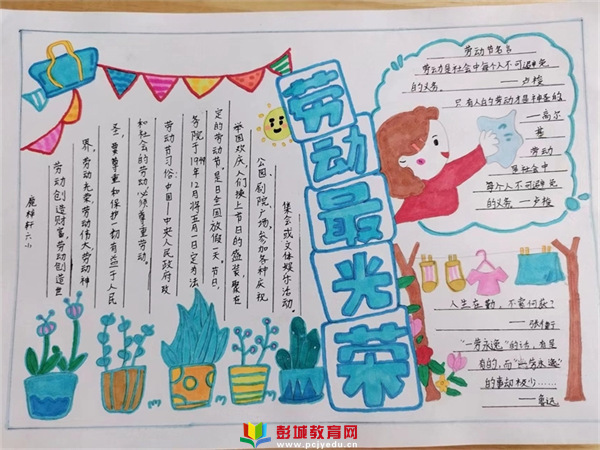 劳动最光荣
劳动创造财富,劳动创造世
界,劳动光荣,劳动伟大,劳动神
圣,要尊重和保护一切有益于人民
和社会的劳动,必须尊重劳动。
劳动节习俗:中国:中央人民政府政
务院于1949年12月将五月一日定为法
定的劳动节,是日全国放假一天。节日,
举国欢庆,人们换上节日的盛装,聚在
公园,剧院,广场,参加各种庆祝
集会或文体娱乐活动。
劳动节名言
劳动是社会中每个人不可避免
的义务 ——卢梭
只有人的劳动才是神圣的
——高尔
基
劳动
是社会中
每个人不可避免
的义务 —卢梭
人生在勤,不索何获?
——张衡
"一劳永逸"的话,有是
有的,而"一劳永逸"
的事却极少……
——鲁迅
彭城教育网
www.pcjyedu.cn